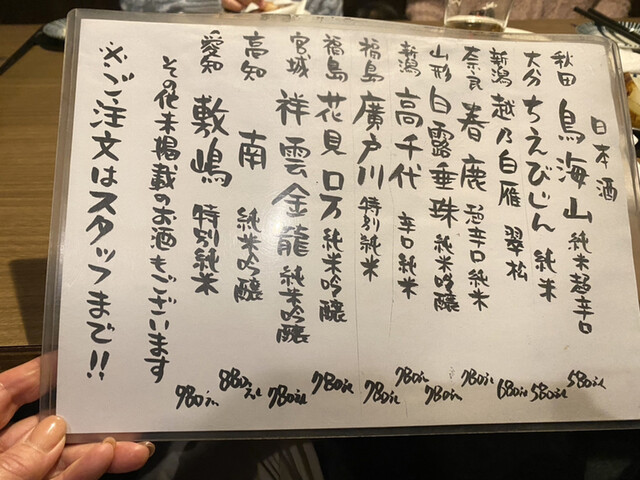 日本酒
秋田 鳥海山 純米超辛口 580えん
大分 ちえびじん 純米 580えん
新潟 越乃白雁 翠松 680えん
奈良 春鹿 超辛口純米 780えん
山形 白露垂珠 純米吟醸 780えん
新潟 高千代 辛口純米 780えん
福島 廣戸川 特別純米 780えん
福島 花見ロ万 純米吟醸 780えん
宮城 祥雲金龍 純米吟醸 780えん
高知 南 純米吟醸 880えん
愛知 敷嶋 特別純米 980えん
その他未掲載のお酒もございます
※ご注文はスタッフまで!!